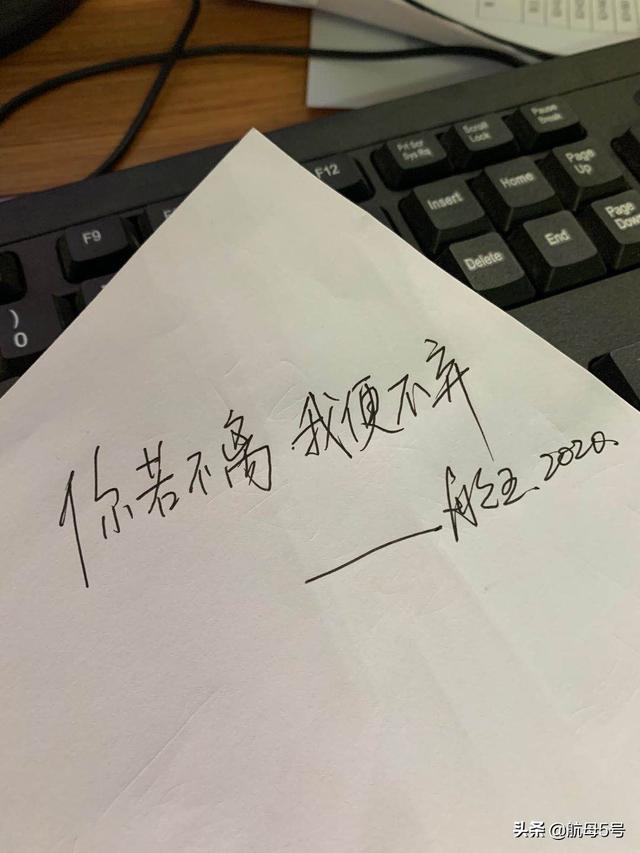 Pause
Break
Scroll
Lock
Prt Scr
Sys Rq
F12
Page
Up
Home
Insert
Page
Down
End
Delete
F9
)
0
你若不离 我便不弃
2020.
头条 @航母5号